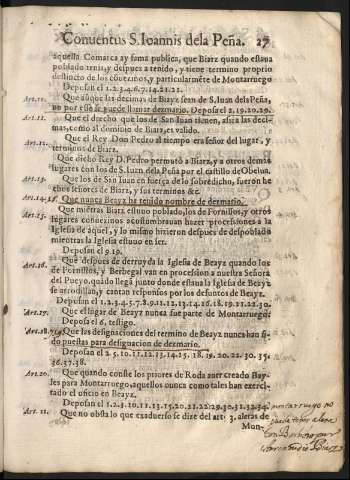 Conuentus S. Ioannis dela Peña. 27
aquella Comarca ay fama publica, que Biarz quando estaua
poblado tenia, y despues a tenido, y tiene termino proprio
destincto de los conuezinos, y particularmēte de Montarruego
Deposan el 1.2.3.4.6.7.14.21.22.
Art.10. Que aūque las decimas de Biarz sean de S. Iuan dela Peña,
no por esso se puede llamar dezmario. Deposan 2.19.20.29.
Art.11. Que el drecho que los de San Iuan tienen, assi a las deci-
mas, como al dominio de Biarz, es valido.
Art.12. Que el Rey Don Pedro al tiempo era señor del lugar, y
terminos de Biarz.
Que dicho Rey D. Pedro permutò a Biarz, y a otros demas
lugares con los de S. Iuan dela Peña por el castillo de Obelua.
Art.13. Que los de San Iuan en fuerça de lo sobredicho, fueron he
chos señores de Biarz, y sus terminos &c.
Art.14. Que nunca Beayz ha tenido nombre de dezmario.
Que miētras Biarz estuuo poblado, los de Fornillos, y otros
lugares conuezinos acostumbrauan hazer processiones a la
Iglesia de aquel, y lo mismo hizieron despues de despoblado
mientras la Iglesia estuuo en ser.
Deposan el 9.19.
Art.16. Que despues de derruyda la Iglesia de Beayz quando los
de Fornillos, y Berbegal van en procession a nuestra Señora
del Pueyo, quādo llegā junto donde estaua la Iglesia de Beayz
se arrodillan, y cantan responsos por los defunctos de Beayz.
Deposan el 1.2.3.4.5.7.8.9.11.12.13.14.16.18.19.21.22.30.
Art.17. Que el lugar de Beayz nunca fue parte de Montarruego:
Deposa el 6. testigo.
Art.18. Que las designaciones del termino de Beayz nunca han si-
do puestas para designacion de dezmario.
Deposan el 2.5.10.11.12.13.14.15.18.19.20.22.30.35.
36.37.38.
Art.20. Que quando conste los priores de Roda auer creado Bay-
les para Montarruego, aquellos nunca como tales han exerci-
tado el oficio en Beayz.
Deposan el 1.2.3.10.11.13.15.20.21.22.29.30.32.34.
Art. 21. Que no obsta lo que exaduerso se dize del art. 3. aleras de
Mon-
montarruego no
puede tener alera